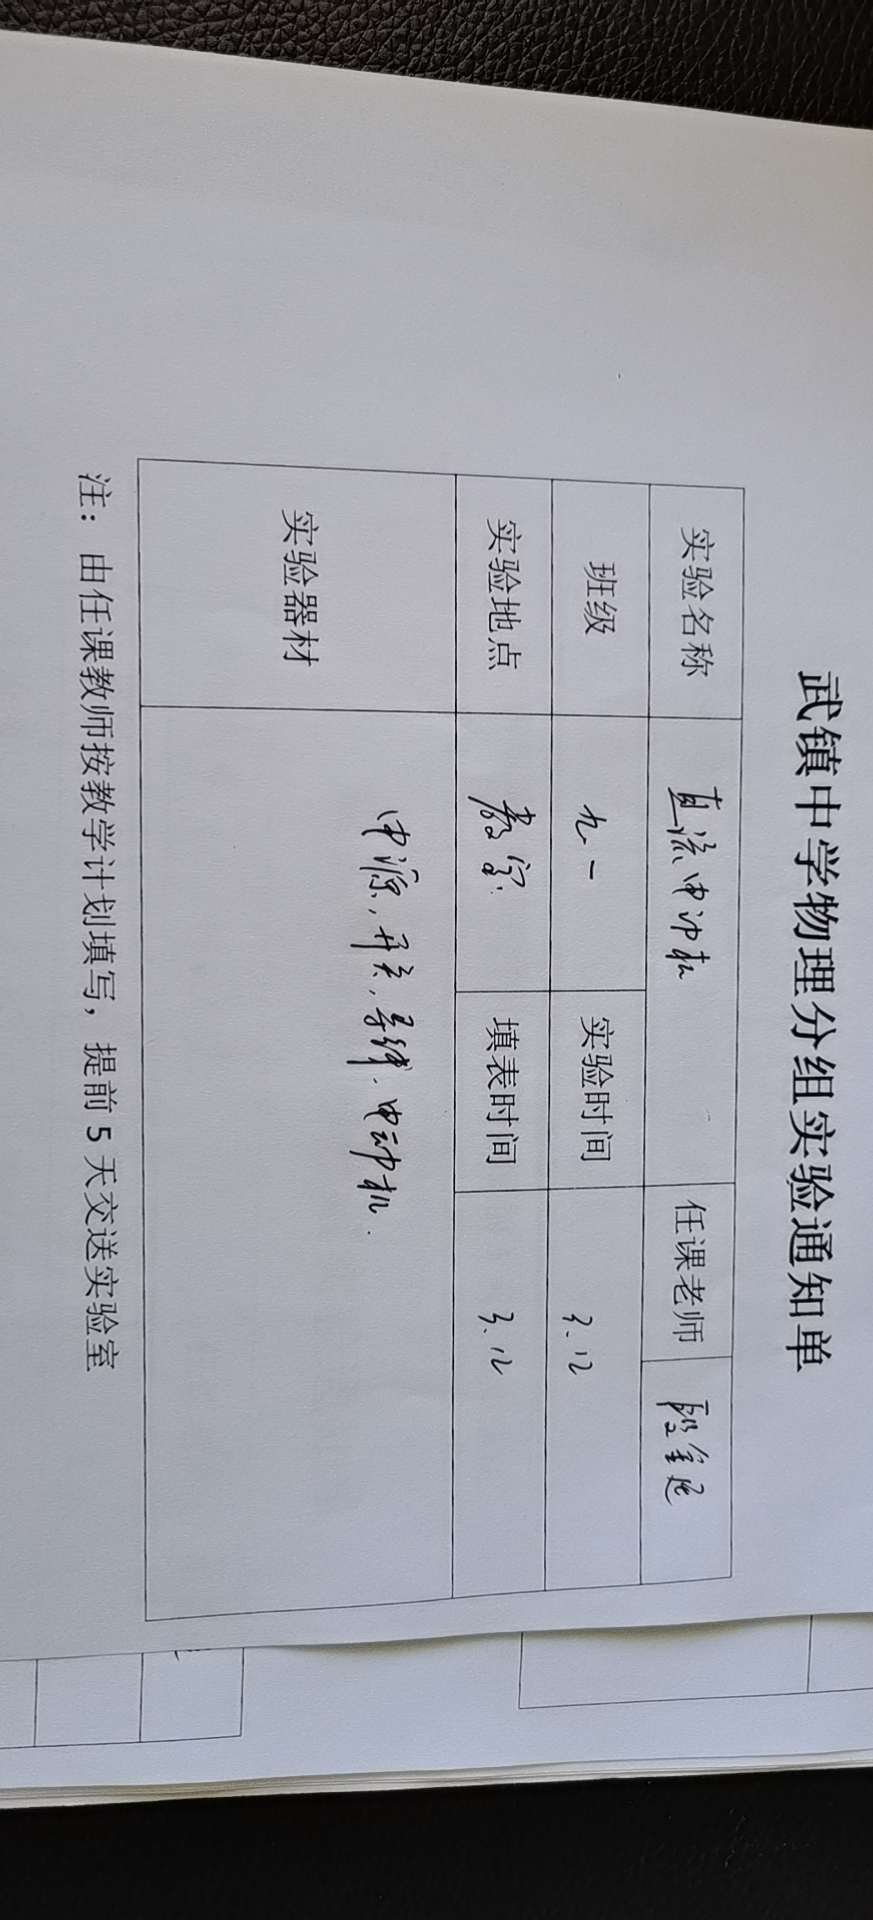 武镇中学物理分组实验通知单
实验名称 直流电动机 任课老师
班级 九一 实验时间 3.12
实验地点 教室. 填表时间 3.12
实验器材 电源,开关,导线.电动机.
注：由任课教师按教学计划填写，提前 5 天交送实验室